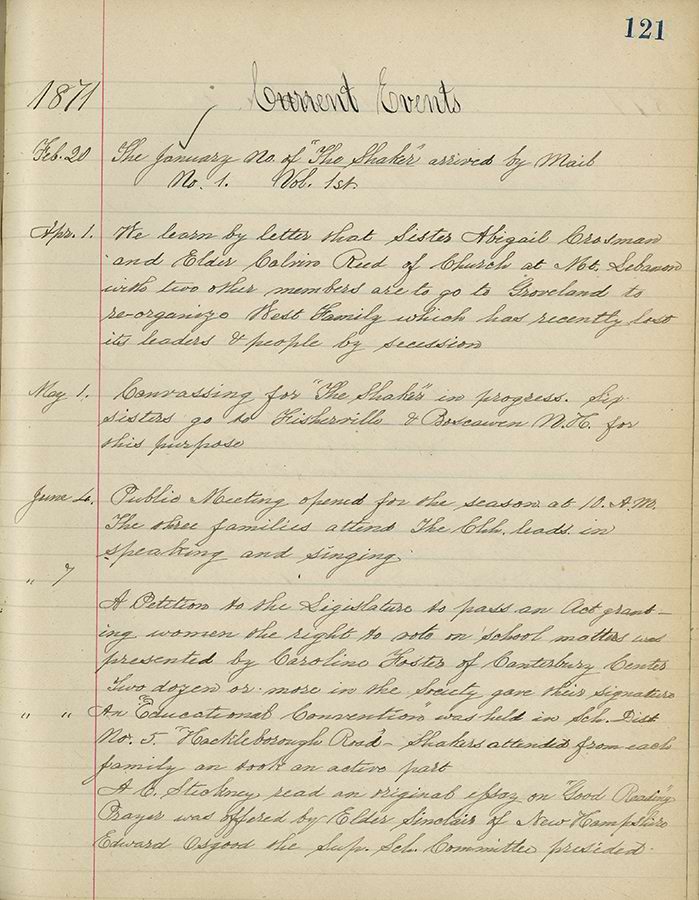 121
1871 Current Events
Feb. 20 The January No. of "The Shaker" arrived by Mail
No. 1. Vol. 1st.
Apr. 1. We learn by letter that Sister Abigail Crosman
and Elder Calvin Reed of Church at Mt. Lebanon
with two other members are to go to Groveland to
re-organize West Family which has recently lost
its leaders & people by secession
May 1. Canvassing for "The Shaker" in progress. Six
sisters go to Fisherville & Boscawen N.H. for
this purpose
June 4. Public Meeting opened for the season at 10. A.M.
The three families attend The Chh. leads in
speaking and singing.
" 7
A Petition to the Ligislature to pass an Act grant-
ing women the right to vote on school matters was
presented by Caroline Foster of Canterbury Center
Two dozen or more in the Society gave their signature
" " An "Educational Convention" was held in Sch. Dist
No. 5. "Hackleborough Road" - Shakers attended from each
family an took an active part
A C. Stickney read an original essay on "Good Reading"
Prayer was offered by Elder Sinclair of New Hampshire
Edward Osgood the Sup. Sch. Committee presided.